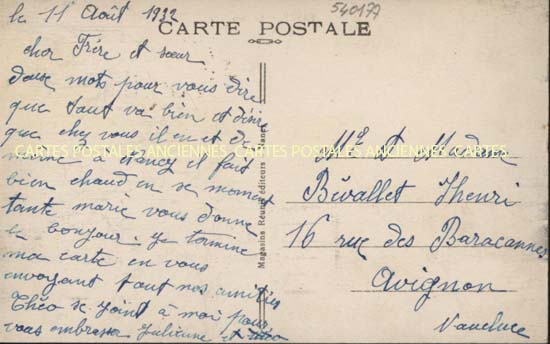 le 11 Août 1932
540177
CARTE POSTALE
cher Frére et sœur
deux mots pour vous dire
que tout va bien et désire
que chez vous il en et de
meme a Nancy il fait
bien chaud en se moment
tante marie vous donne
le bonjour. je termine
ma carte en vous
envoyant tout nos amitiés
Théo se joint à moi pour
vous embrasser Julienne et
CARTES POSTALES ANCIENNES CARTES POSTALES ANCIENNES CARTES POSTALES
Magasins Réunis éditeurs Nancy
Mr et Madame
Bévallet Henri
16 rue des Baracannes
Avignon
Vaucluse